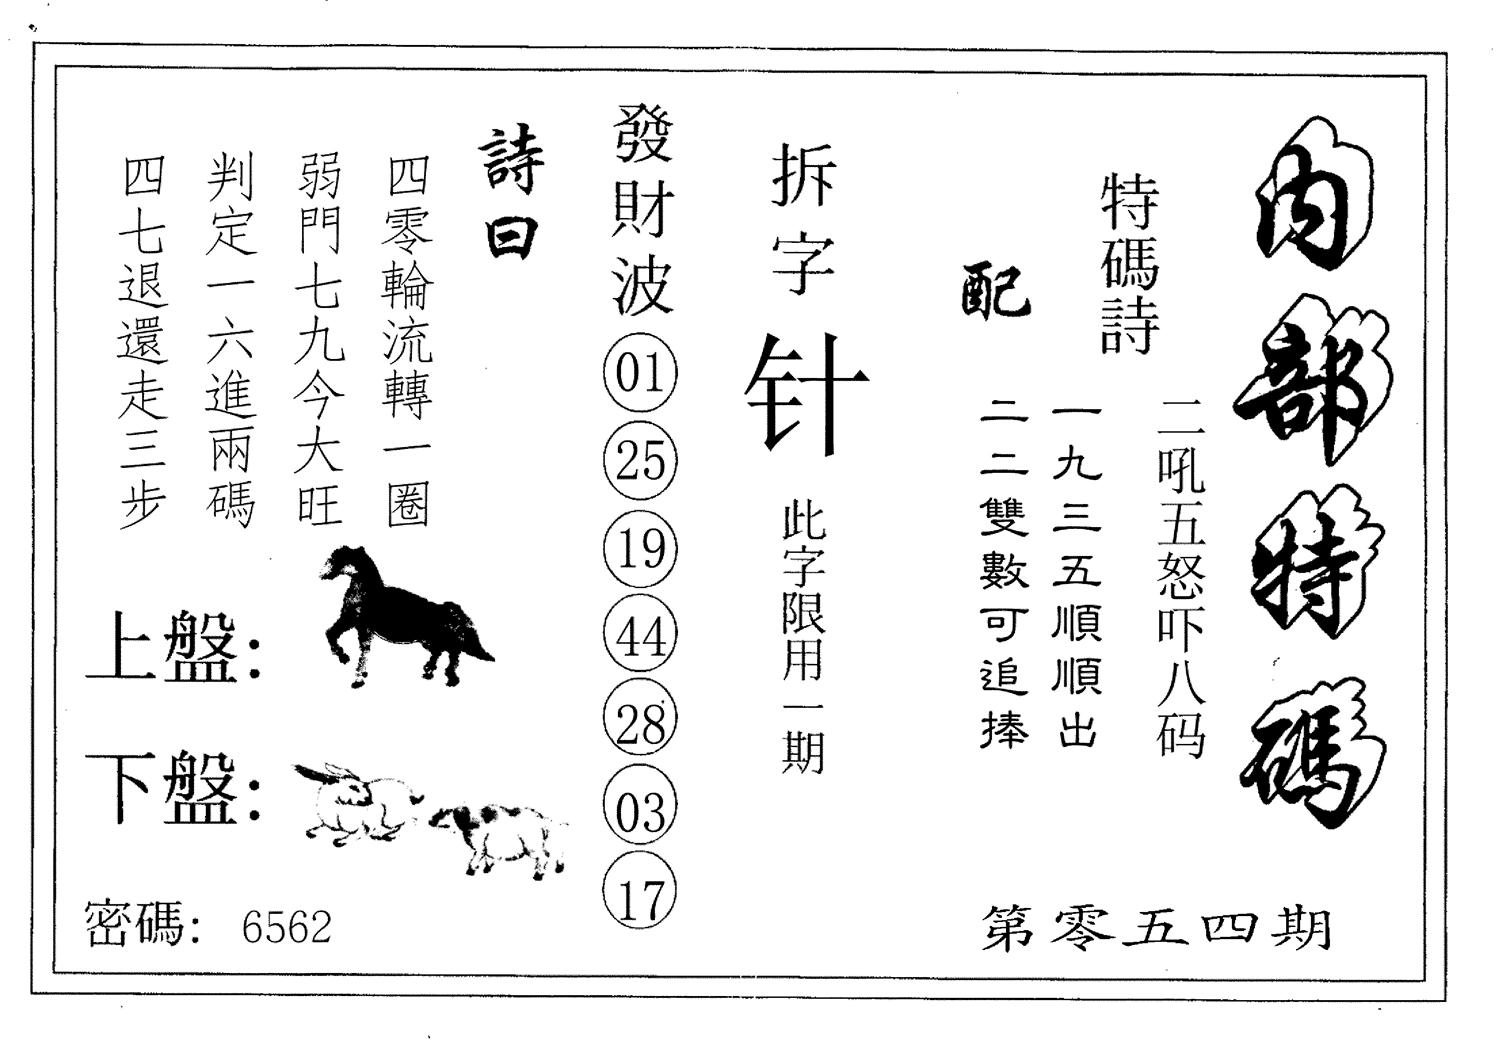 內部特碼
第零五四期
特碼詩
二吼五怒吓八码
配
一九三五順順出
二二雙數可追捧
拆字
针
此字限用一期
發財波
01
25
19
44
28
03
17
詩曰
四零輪流轉一圈
弱門七九今大旺
判定一六進兩碼
四七退還走三步
上盤:
下盤:
密碼: 6562